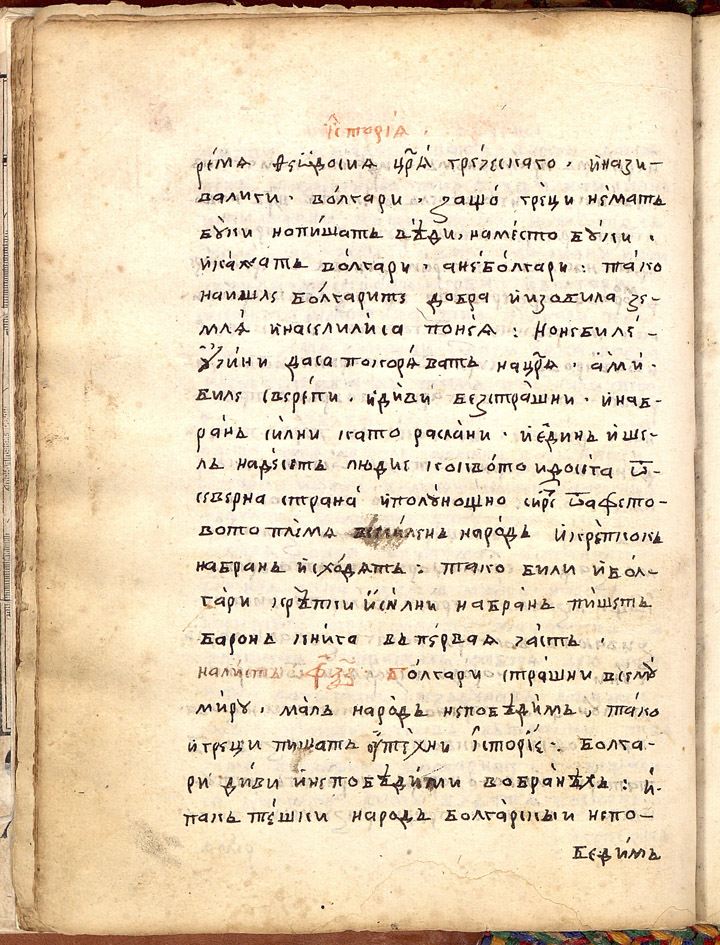 їсторіѧ ·
ре́мѧ ѳеѡ́досиѧ цр҃ѧ̀ гре́ческаго · и҆нази–
валиги · во́лгари · защо̀ гре́ци не́матъ
бу́ки нопи́шатъ вѣ́ди, наме́сто бу́ки ·
и҆ка́жатъ во́лгари · анебо́лгари : та́ко
наишле бо́лгарите добра̀ и҆изобила зе–
млѧ̀ и҆населили́са поне́ѧ : Нонебиле́ –
ѹ҆чи́ни даса покорѧ́ватъ нацр҃ѧ̀ · а҆ми̇ ·
биле свере́пи · и҆ди́ви безстра́шни · и҆наб–
ра́нь си́лни като расла́ни · и҆е҆ди́нъ и҆ше–
лъ на де́сетъ людие коево́то и҆досе́га ѿ–
северна страна̀ и҆полу́нощно си́рѣ ѿафето–
вото пле́мѧ наро́дъ и҆кре́покъ
на бранъ и҆схо́дѧтъ : та́ко били и҆бо́л–
гари крѣ́пки и҆си́лни на бра́нь пи́шетъ
баронъ кни́га въ пе́рваѧ ча́сть ·
на ли́стъ ф҃зз · Бо́лгари стра́шни всему̀
ми́ру · малъ наро́дъ непобѣди́мъ · та́ко
и҆греци пи́шатъ ѹ҆те́хни і҆сто́рїе · Болга–
ри ди́ви и҆непобѣди́ми во бра́нѣхъ : и҆–
пакъ те́шки наро́дъ болга́рскы и҆ непо–
беди́мъ